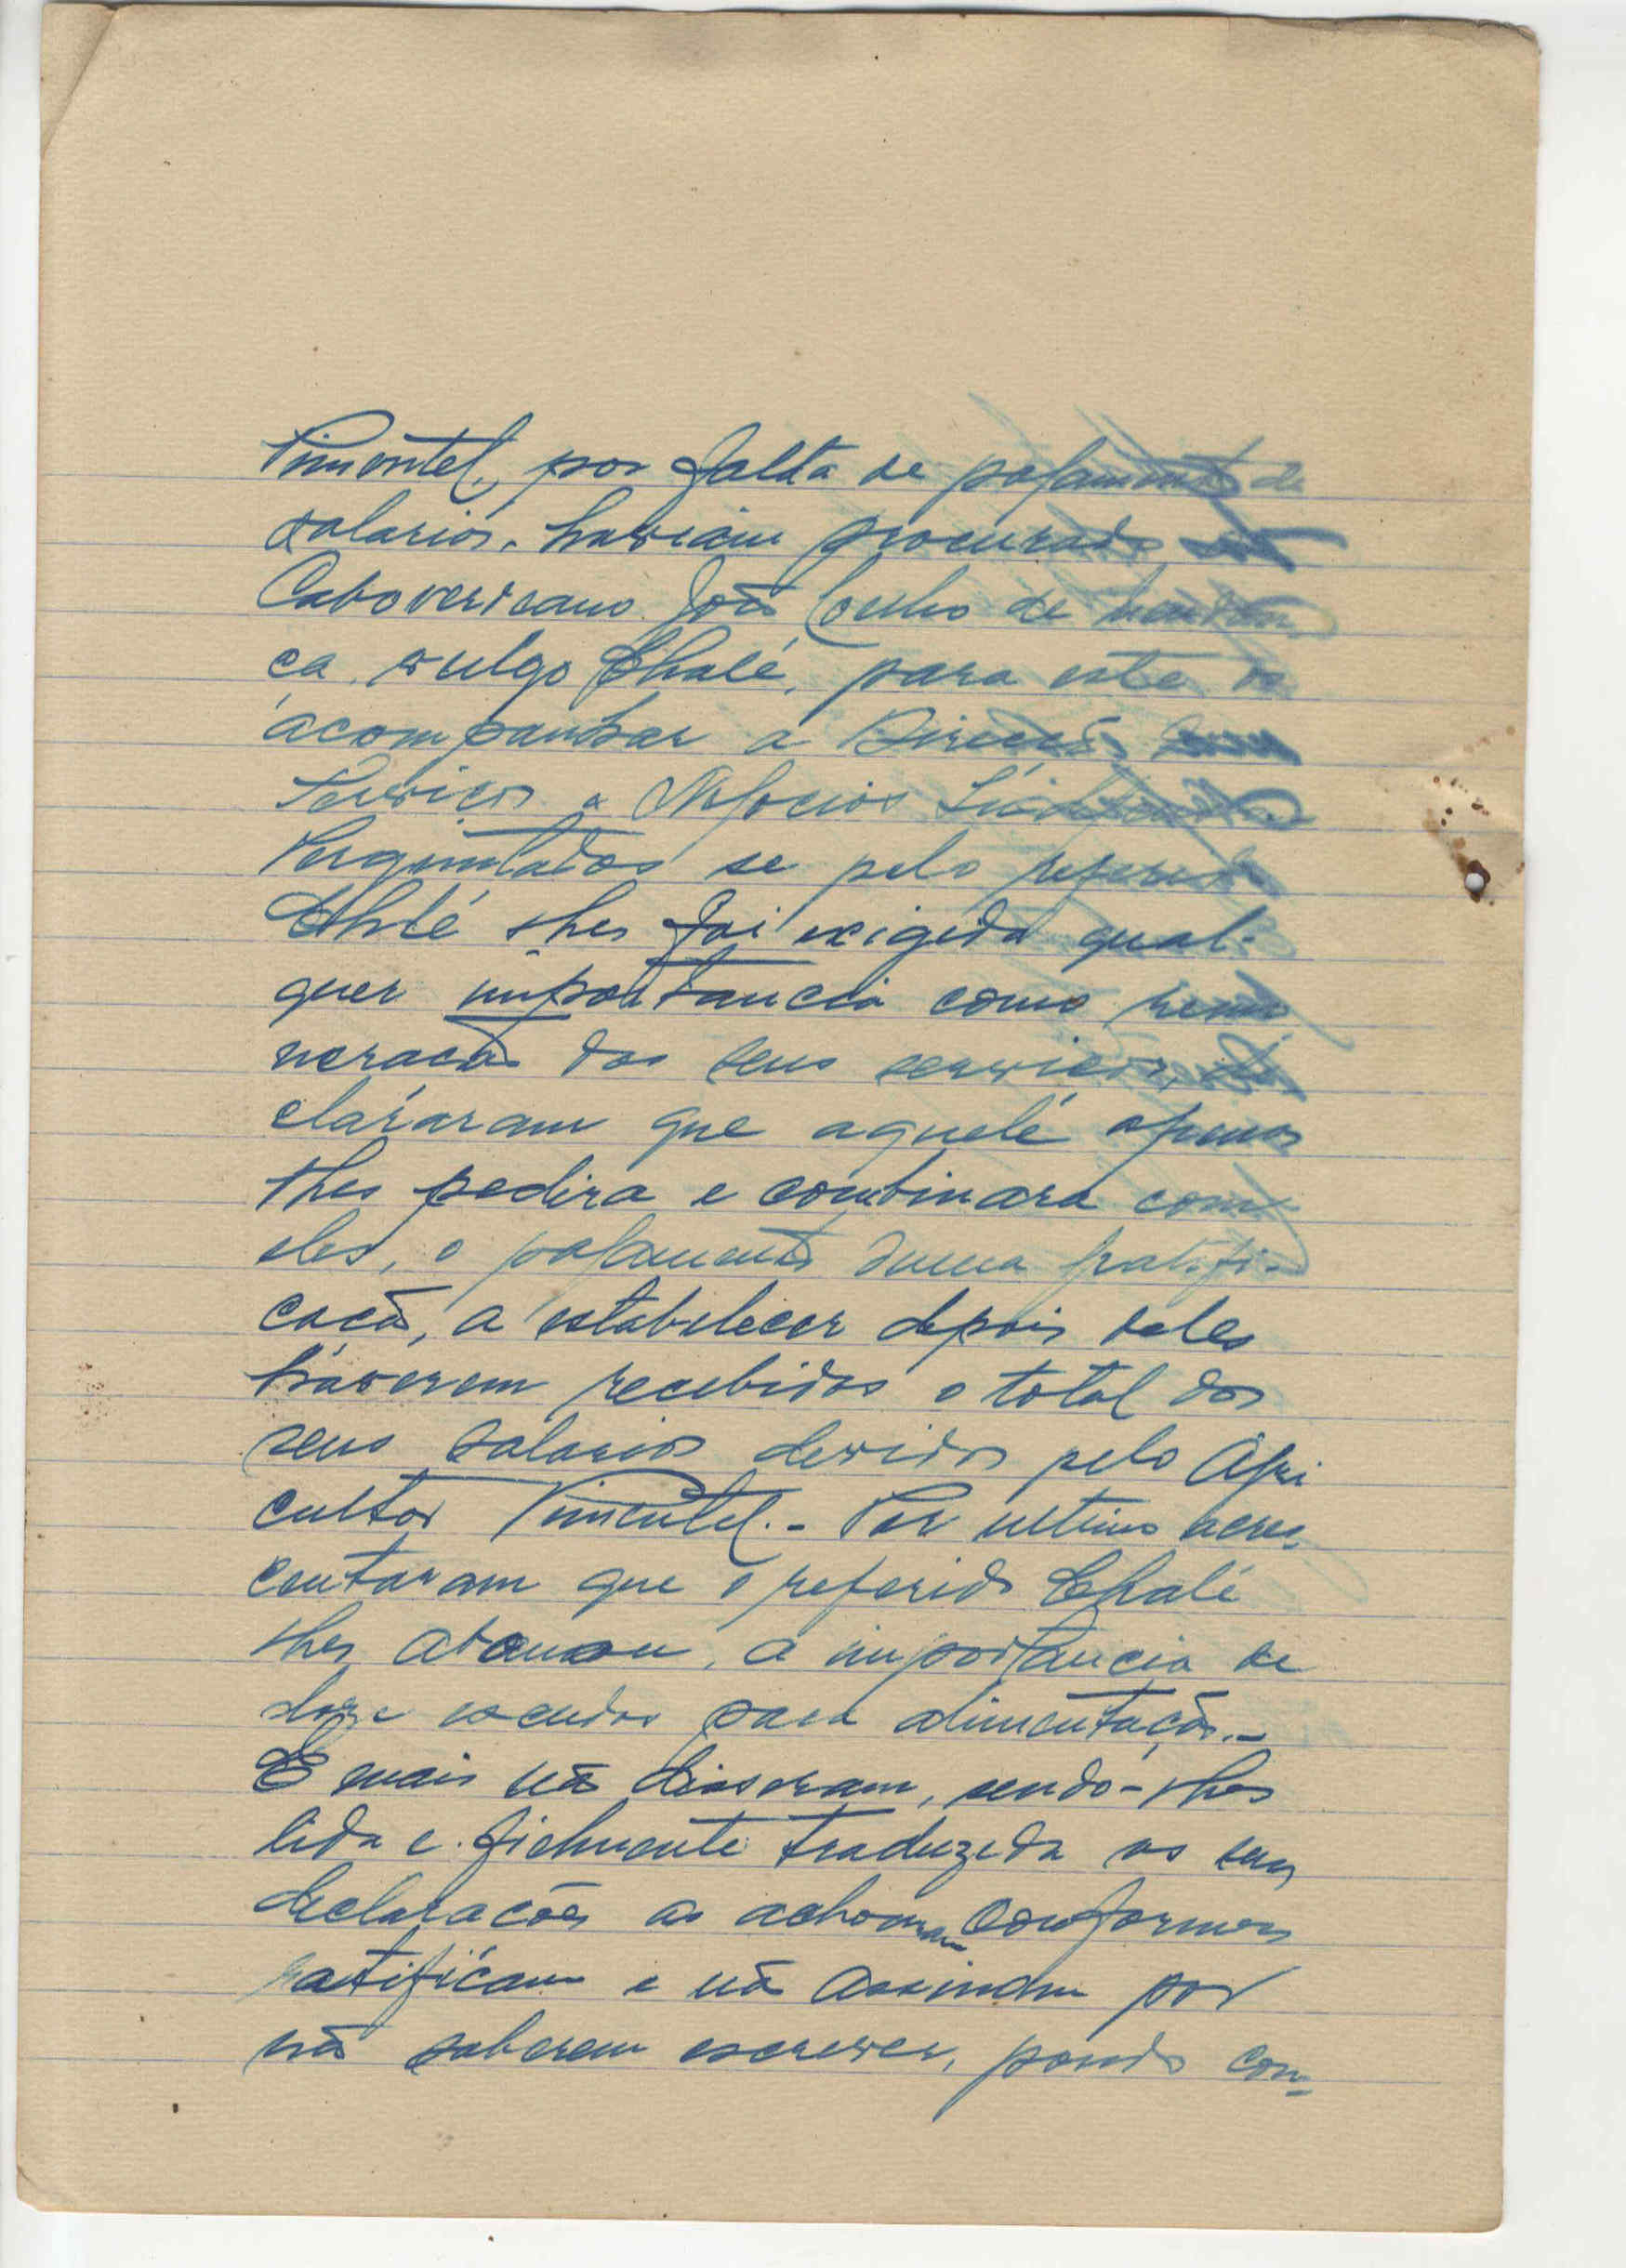 Pimentel, por falta de pagamento de
salarios, haviam procurado
Caboverdeano João Coelho de
ca, vulgo Chalé, para este os
acompanhar a Direcção dos
Serviços e Negocios Indigenas
Perguntados se pelo referido
Chalé lhes foi exigida qual-
quer importancia como remu
neração dos seus serviços, de
claráram que aquelé apenas
lhes pedira e combinara com
eles, o pagamento duma gratifi-
cacão, a estabelecer depois deles
háverem recebidos o total dos
seus salarios devidos pelo Agri
cultor Pimentel.- Por ultimo acres-
centaram que o referido Chalé
lhes abonou, a importancia de
doze escudos para alimentação.-
E mais não disseram, sendo-lhes
lida e fielmente traduzida as suas
declarações as acharam conformes
ratificam e não assinam por
não saberem escrever, pondo com-